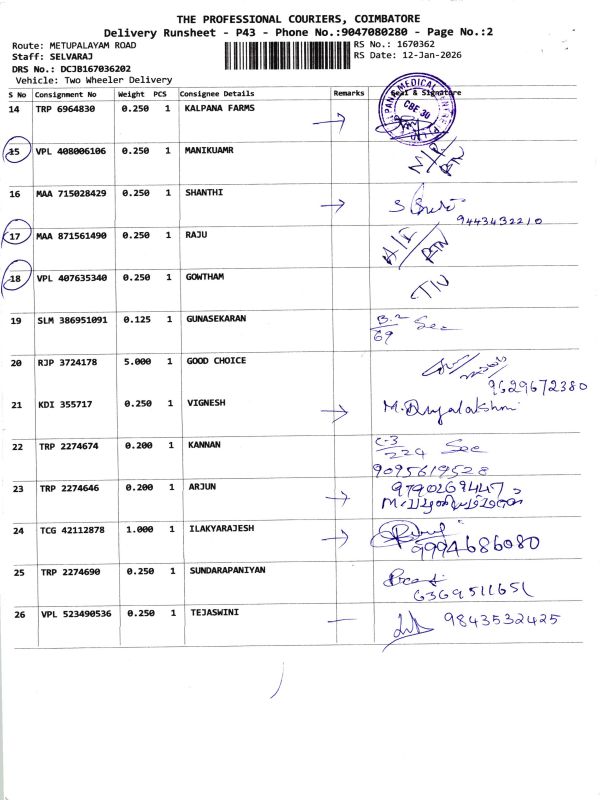 THE PROFESSIONAL COURIERS, COIMBATORE
Delivery Runsheet - P43 - Phone No.:9047080280 - Page No.:2
Route: METUPALAYAM ROAD RS No.: 1670362
Staff: SELVARAJ RS Date: 12-Jan-2026
DRS No.: DCJB167036202
Vehicle: Two Wheeler Delivery
S No Consignment No Weight PCS Consignee Details Remarks Seal & Signature
14 TRP 6964830 0.250 1 KALPANA FARMS
CBE 30
15 VPL 408006106 0.250 1 MANIKUAMR
16 MAA 715028429 0.250 1 SHANTHI
9443432210
17 MAA 871561490 0.250 1 RAJU
18 VPL 407635340 0.250 1 GOWTHAM
19 SLM 386951091 0.125 1 GUNASEKARAN B.2/69 Sec
20 RJP 3724178 5.000 1 GOOD CHOICE
9629672380
21 KDI 355717 0.250 1 VIGNESH
22 TRP 2274674 0.200 1 KANNAN C-3/224 Sec
9095619528
23 TRP 2274646 0.200 1 ARJUN 9790269447
24 TCG 42112878 1.000 1 ILAKYARAJESH
9994686080
25 TRP 2274690 0.250 1 SUNDARAPANIYAN
6369511651
26 VPL 523490536 0.250 1 TEJASWINI 9843532425